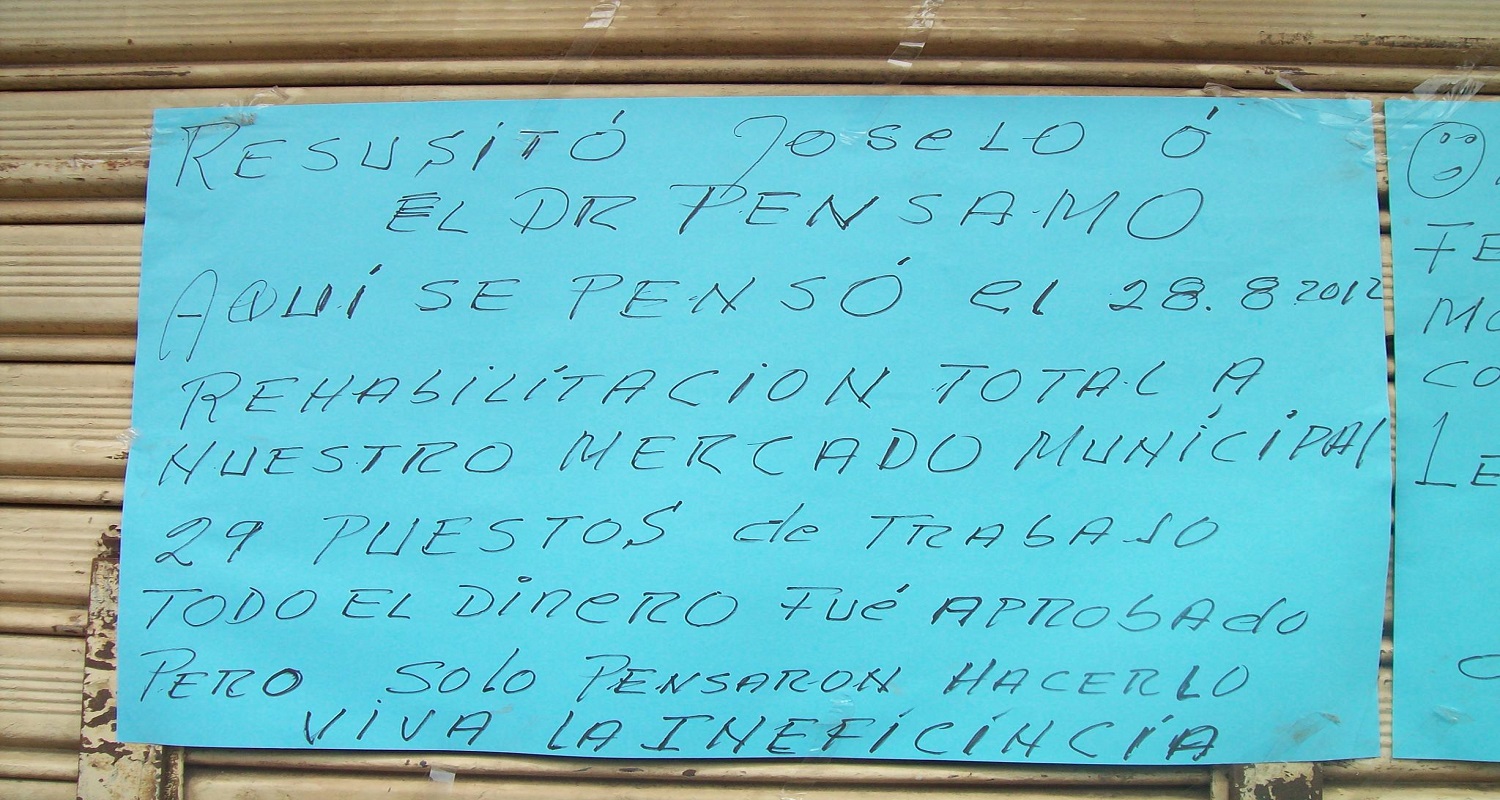 RESUSITÓ JOSELO Ó
EL DR PENSAMO
AQUÍ SE PENSÓ el 28.8 2012
REHAbiLITACION TOTAL A
NUESTRO MERCADO MUNICIPAl
29 PUESTOS de TRAbAJO
TODO EL DINERO FUé APROBAdo
PERO SOLO PENSARON HACERLO
VIVA LA INEFICINCIA
FE
MO
CO
LE